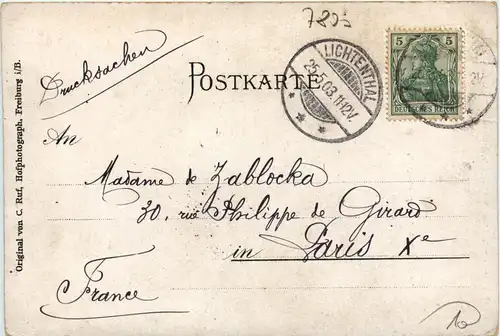 7895
Drucksachen
POSTKARTE
LICHTENTHAL
25.5.03.11-12V.
5 5
DEUTSCHES REICH
An
Madame de Zablocka
30, rue Philippe de Girard
in Paris Xe
France
Original von C. Ruf, Hofphotograph, Freiburg i/B.